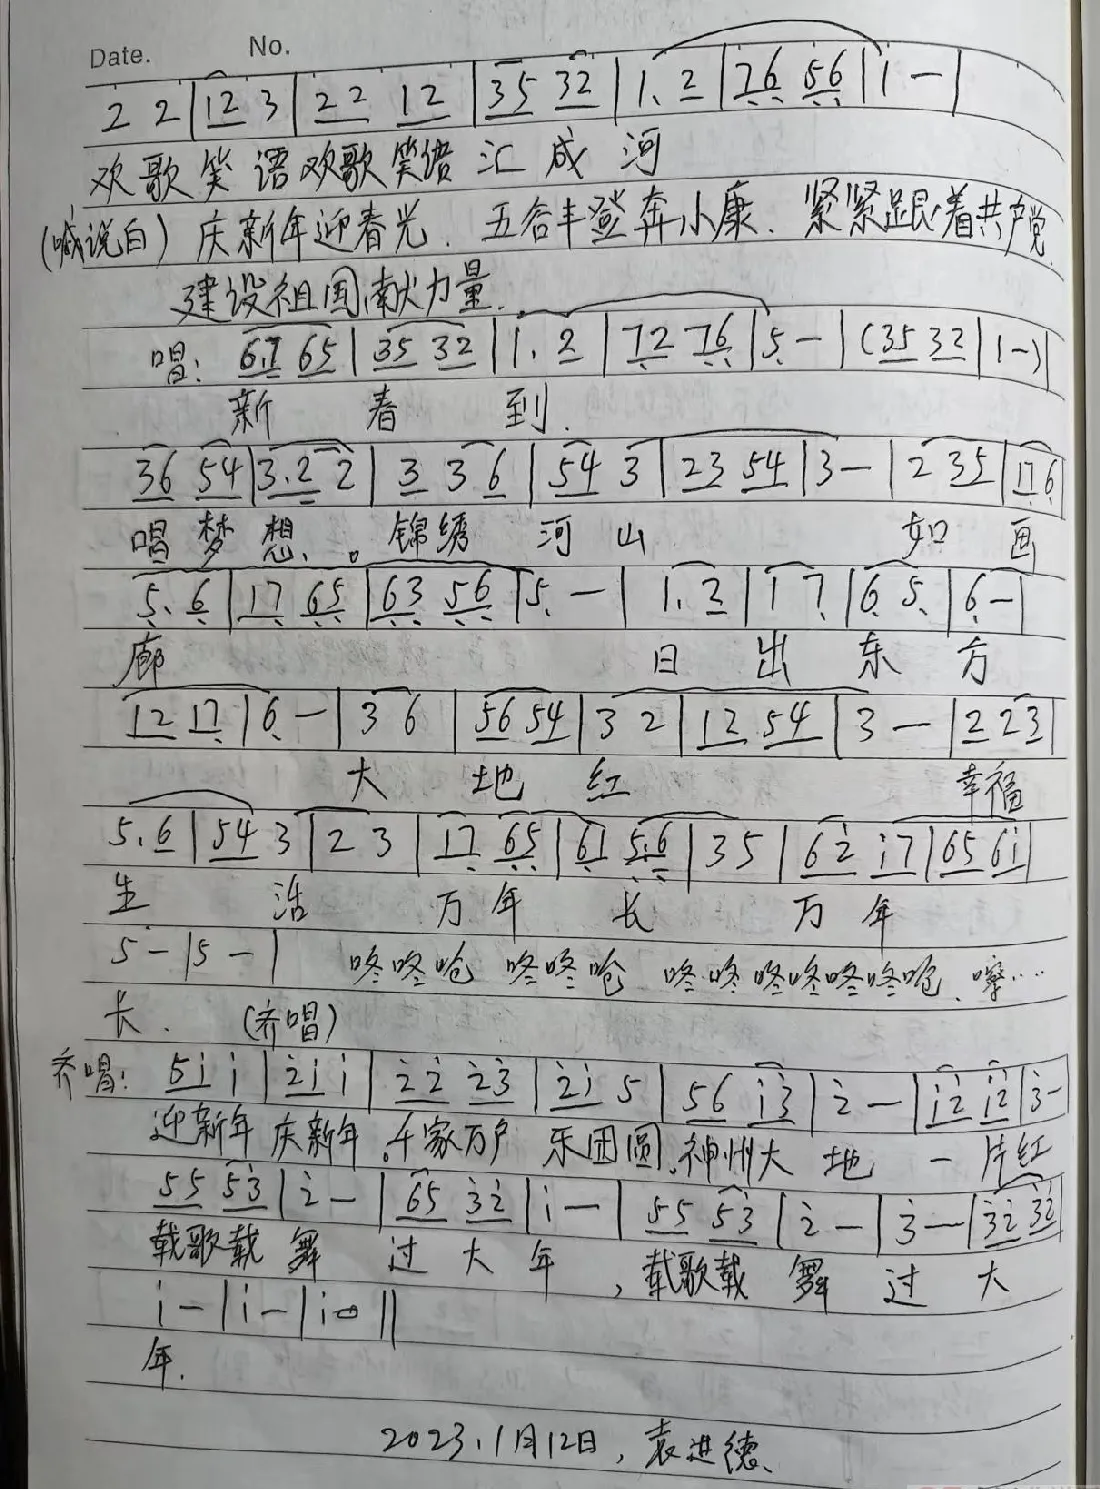 Date. No.
2 2 | 12 3 | 22 12 | 35 32 | 1. 2 | 76 56 | 1 — |
欢歌笑语欢歌笑语汇成河
(喊说白) 庆新年迎春光、五谷丰登奔小康、紧紧跟着共产党
建设祖国献力量.
唱: 6.7 65 | 35 32 | 1. 2 | 72 76 | 5 — | (35 32 | 1 —) |
新春到.
36 54 | 3.2 2 | 3 3 6 | 54 3 | 23 54 | 3 — | 2 35 | 17 6
唱梦想、。锦绣河山 如画
5. 6 | 17 65 | 63 56 | 5 — | 1. 3 | 1 7 | 6 5 | 6 — |
廊 日出东方
12 17 | 6 — | 3 6 | 56 54 | 3 2 | 12 54 | 3 — | 2 2 3 |
大地红 幸福
5. 6 | 54 3 | 2 3 | 17 65 | 61 56 | 3 5 | 62 17 | 65 61 |
生活万年长万年
5 — | 5 — | 咚咚呛 咚咚呛 咚咚咚咚咚咚呛、嚓…
长. (齐唱)
齐唱: 51 1 | 21 1 | 22 23 | 21 5 | 56 13 | 2 — | 12 12 | 3 —
迎新年庆新年、千家万户乐团圆、神州大地一片红
55 53 | 2 — | 65 32 | 1 — | 55 53 | 2 — | 3 — | 32 32
载歌载舞过大年，载歌载舞过大
1 — | 1 — | 1 0 ‖
年.
2023.1月12日，袁进德、